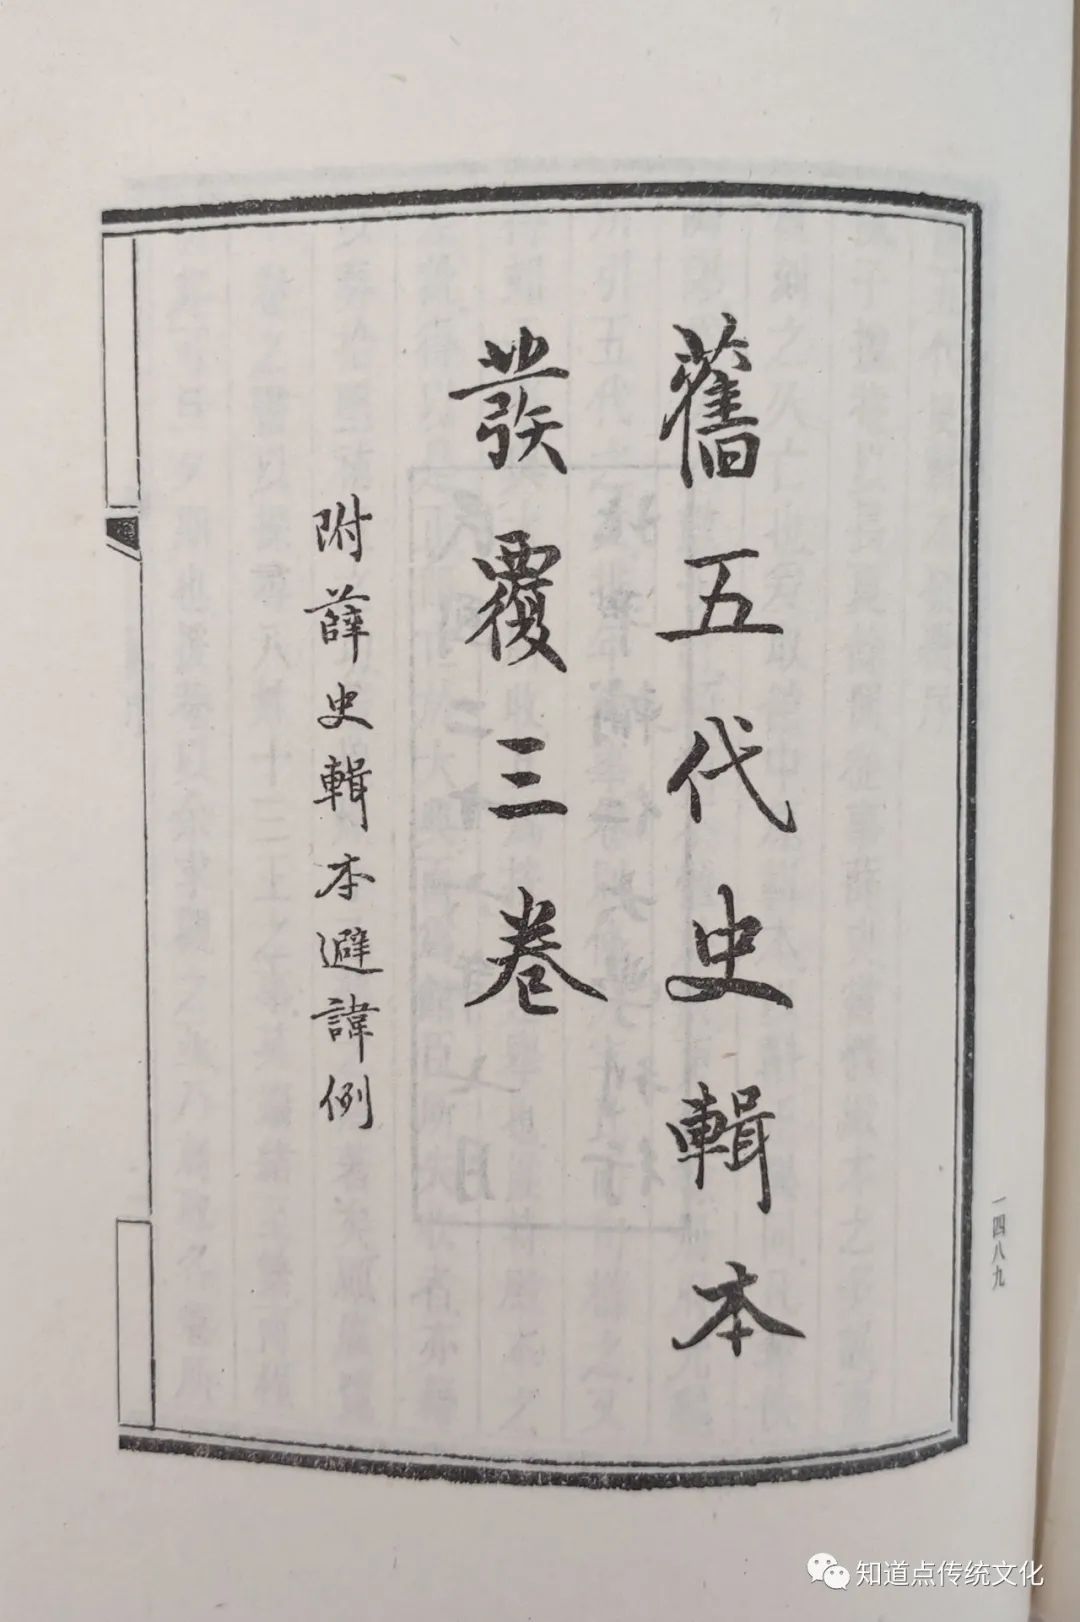 舊五代史輯本
發覆三卷
附薛史輯本避諱例
一四八九
知道点传统文化